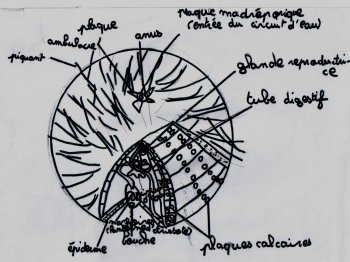 plaque madréporique
(entrée du circuit d'eau)
plaque
anus
ambulacre
piquant
glande reproductri-
ce
tube digestif
machoires
(lanterne d'aristote)
bouche
épiderme
plaques calcaires